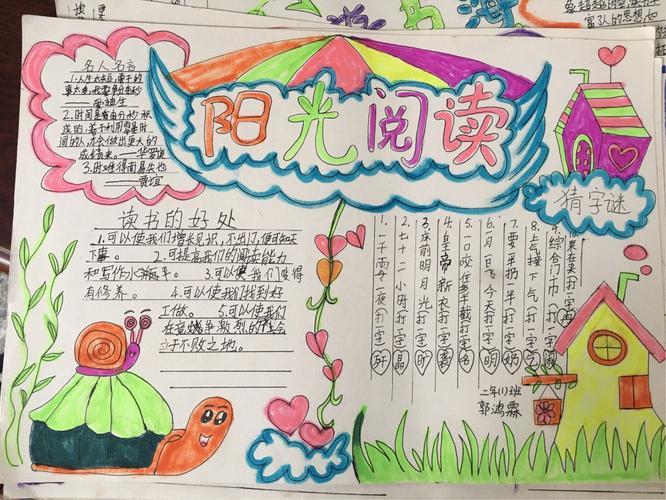 阳光阅读
名人名言
——爱迪生
2.时间是由分秒积
成的,善于利用零星时
间的人,才会做出更大的
成绩来。——华罗庚
3.时难得而易失也
——贾谊
读书的好处
1.可以使我们增长见识,不出门,便可知天
下事。 2.可提高我们的阅读能力
和写作水平。 3.可以使我们变得
有修养。 4.可以使我们找到好
工作。 5.可以使我们
在竞争激烈的社会
立于不败之地。
猜字谜
1.一千零一夜(打一字)
2.七十二小时(打一字)晶
3.床前明月光(打一字)旷
4.皇帝新衣(打一字)袭
5.一口咬住多半截(打一字)名
6.一月一日飞今天(打一字)明
7.要来扔一半(打一字)奶
8.上气接下气(打一字)
9.综合门市(打一字)闹
二年(1)班
郭鸿霖